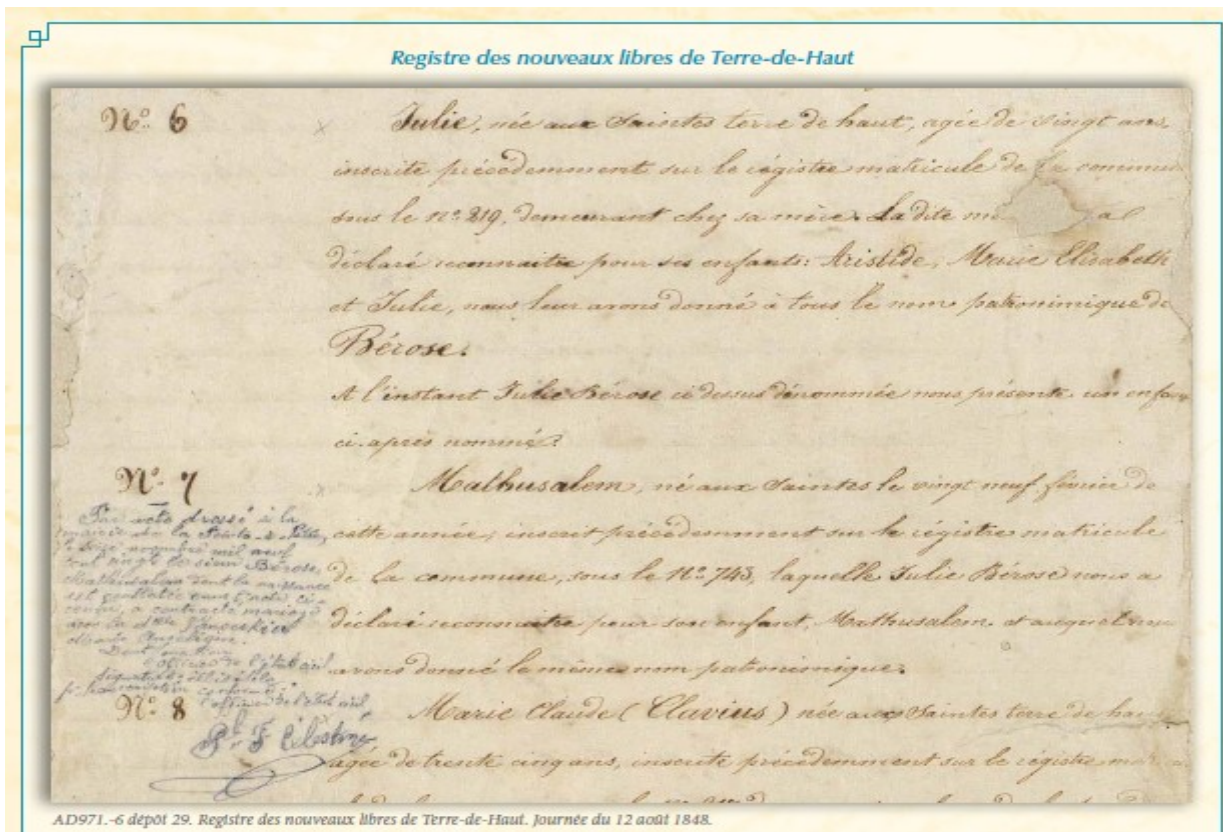 Registre des nouveaux libres de Terre-de-Haut
N.º 6
Julie, née aux Saintes terre de haut, agée de vingt ans,
inscrite précédemment sur le régistre matricule de la commun
sous le n.º 219, demeurant chez sa mère. La dite
déclaré reconnaitre pour ses enfants: Aristide, Marie Elisabeth
et Julie, nous leur avons donné à tous le nom patronimique de
Bérose.
A l'instant Julie Bérose ci dessus dénommée nous présente un enfan
ci-après nommé:
N.º 7
Mathusalem, né aux Saintes le vingt neuf février de
cette année, inscrit précédemment sur le régistre matricule
de la commune, sous le N.º 743, laquelle Julie Bérose nous a
déclaré reconnaitre pour son enfant, Mathusalem. et auquel nous
avons donné le même nom patronimique.
Par acte dressé à la
mairie de la Pointe-à-Pitre,
le seize novembre mil neuf
cent vingt le sieur Bérose,
Mathusalem dont la naissance
est constatée dans l'acte ci-
contre, a contracté mariage
avec la dlle
Marie
Dont mention
L'officier de l'état civil
conforme
L'officier de l'état civil,
F. Célestine
N.º 8
Marie Claude (Clavius) née aux Saintes terre de hau
agée de trente cinq ans, inscrite précédemment sur le régistre
AD971.-6 dépôt 29. Registre des nouveaux libres de Terre-de-Haut. Journée du 12 août 1848.